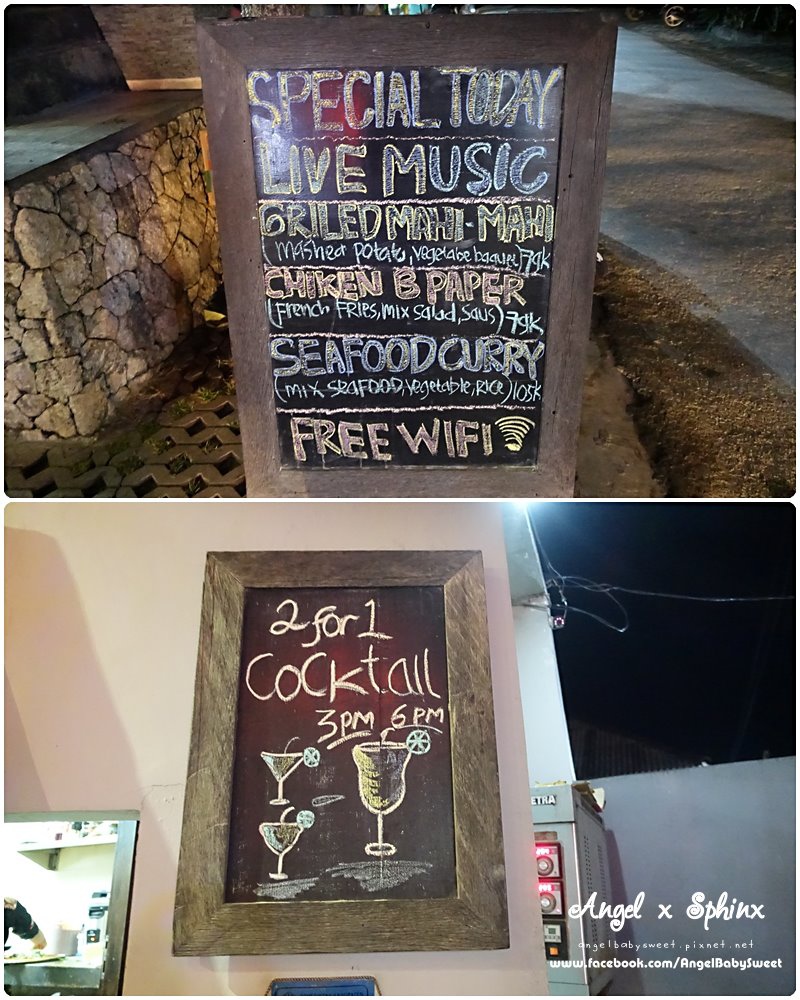 SPECIAL TODAY
LIVE MUSIC
GRILED MAHI-MAHI
(Mashed potato, vegetabe baquet) 79k
CHIKEN B PAPER
(French FRIES, mix salad, saus) 79k
SEAFOOD CURRY
(mix SEAFOOD, vegetable, RICE) 105k
FREE WIFI
2 for 1
Cocktail
3pm 6pm
ETRA
Angel x Sphinx
angelbabysweet.pixnet.net
www.facebook.com/AngelBabySweet